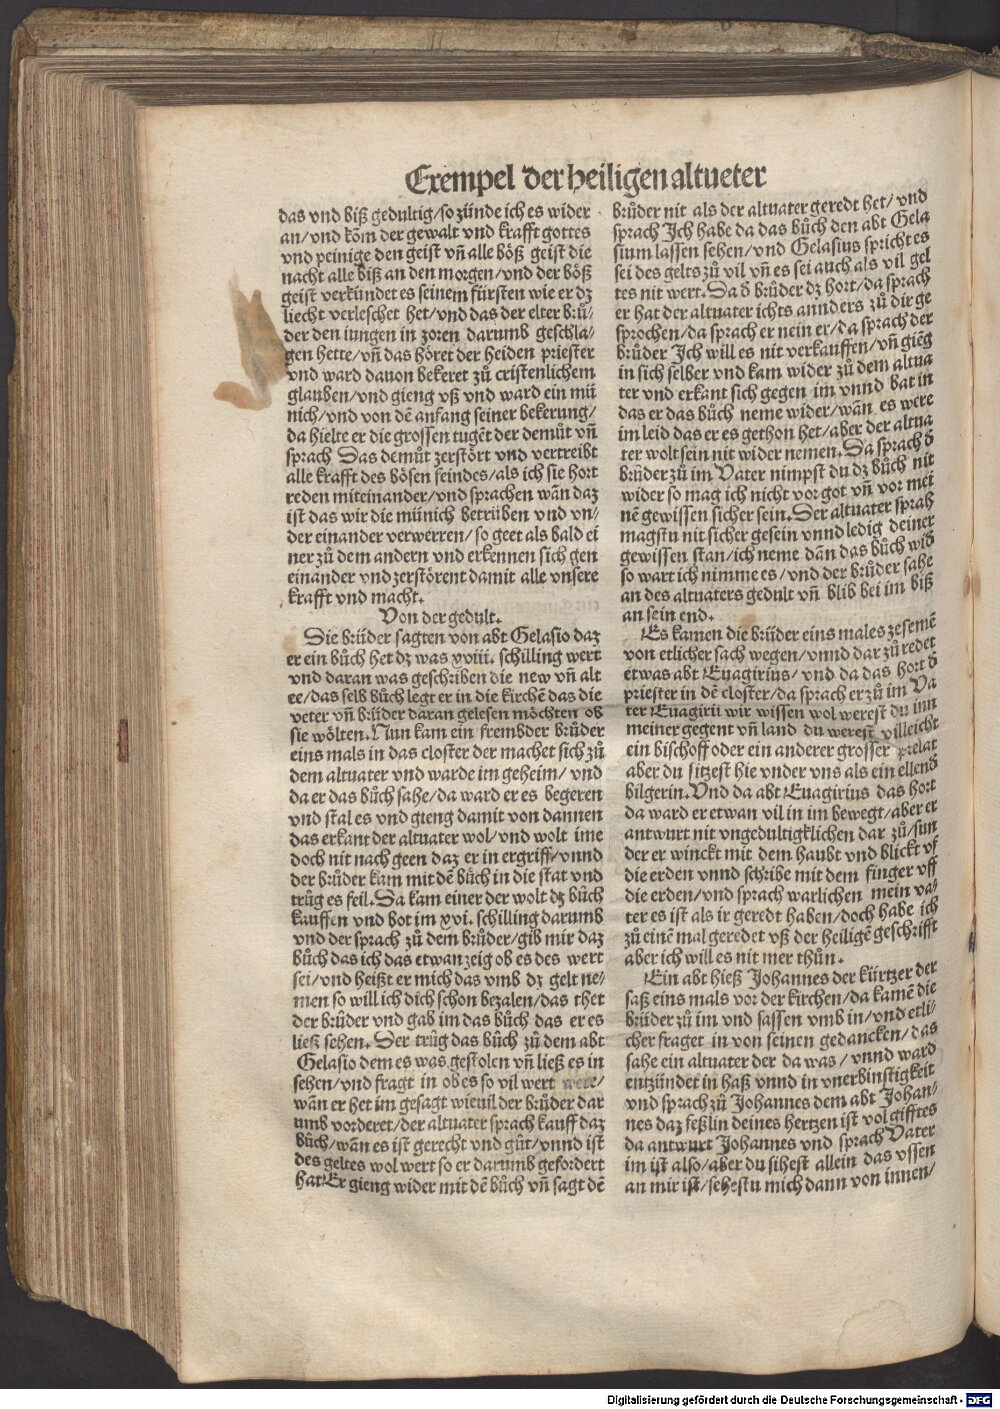 Exempel der heiligen altueter
das vnd biß gedultig/so zünde ich es wider
an/vnd köm der gewalt vnd krafft gottes
vnd peinige den geist vñ alle böß geist die
nacht alle biß an den morgen/vnd der böß
geist verkündet es seinem fürsten wie er dz
liecht verleschet het/vnd das der elter brů⸗
der den iungen in zoren darumb geschla⸗
gen hette/vñ das höret der heiden priester
vnd ward dauon bekeret zů cristenlichem
glauben/vnd gieng vß vnd ward ein mü
nich/vnd von dē anfang seiner bekerung/
da hielte er die grossen tugēt der demůt vñ
sprach Das demůt zerstört vnd vertreibt
alle krafft des bösen feindes/als ich sie hort
reden miteinander/vnd sprachen wān daz
ist das wir die münich betrüben vnd vn⸗
der einander verwerren/so geet als bald ei
ner zů dem andern vnd erkennen sich gen
einander vnd zerstörent damit alle vnsere
krafft vnd macht.
Von der gedult.
Die brüder sagten von abt Gelasio daz
er ein bůch het dz was xviii. schilling wert
vnd daran was geschriben die new vñ alt
ee/das selb bůch legt er in die kirchē das die
veter vñ brüder daran gelesen möchten ob
sie wölten. Nun kam ein frembder brůder
eins mals in das closter der machet sich zů
dem altuater vnd warde im geheim/vnd
da er das bůch sahe/da ward er es begeren
vnd stal es vnd gieng damit von dannen
das erkant der altuater wol/vnd wolt ime
doch nit nach geen daz er in ergriff/vnnd
der brůder kam mit dē bůch in die stat vnd
trůg es feil. Da kam einer der wolt dz bůch
kauffen vnd bot im xvi. schilling darumb
vnd der sprach zů dem brůder/gib mir daz
bůch das ich das etwan zeig ob es des wert
sei/vnd heißt er mich das vmb dz gelt ne⸗
men so will ich dich schon bezalen/das thet
der brůder vnd gab im das bůch das er es
ließ sehen. Der trůg das bůch zů dem abt
Gelasio dem es was gestolen vñ ließ es in
sehen/vnd fragt in ob es so vil wert were/
wān er het im gesagt wieuil der brůder dar
umb vorderet/der altuater sprach kauff daz
bůch/wān es ist gerecht vnd gůt/vnnd ist
des geltes wol wert so er darumb gefordert
hat Er gieng wider mit dē bůch vñ sagt dē
brůder nit als der altuater geredt het/vnd
sprach Ich habe da das bůch den abt Gela
sium lassen sehen/vnd Gelasius spricht es
sei des gelts zů vil vñ es sei auch als vil gel
tes nit wert. Da d̄ brůder dz hort/da sprach
er hat der altuater ichts annders zů dir ge
sprochen/da sprach er nein er/da sprach der
brůder Ich will es nit verkauffen/vñ gieg
in sich selber vnd kam wider zů dem altua
ter vnd erkant sich gegen im vnnd bat in
das er das bůch neme wider/wān es were
im leid das er es gethon het/aber der altua
ter wolt sein nit wider nemen. Da sprach d̄
brůder zů im Vater nimpst du dz bůch nit
wider so mag ich nicht vor got vñ vor mei
nē gewissen sicher sein. Der altuater sprah
magstu nit sicher gesein vnnd ledig deiner
gewissen stan/ich neme dān das bůch wid̄
so wart ich nimme es/vnd der brůder sahe
an des altuaters gedult vñ blib bei im biß
an sein end.
Es kamen die brüder eins males zesemē
von etlicher sach wegen/vnnd dar zů redet
etwas abt Euagirius/vnd da das hort d̄
priester in dē closter/da sprach er zů im Va
ter Euagirii wir wissen wol werest du inn
meiner gegent vñ land du werest villeicht
ein bischoff oder ein anderer grosser prelat
aber du sitzest hie vnder vns als ein ellend̄
bilgerin. Vnd da abt Euagirius das hort
da ward er etwan vil in im bewegt/aber er
antwurt nit vngedultigklichen dar zů/sun
der er winckt mit dem haubt vnd blickt vf
die erden vnnd schribe mit dem finger vff
die erden/vnd sprach warlichen mein va⸗
ter es ist als ir geredt haben/doch habe ich
zů einē mal geredet vß der heiligē geschrifft
aber ich will es nit mer thůn.
Ein abt hieß Johannes der kürtzer der
saß eins mals vor der kirchen/da kamē die
brüder zů im vnd sassen vmb in/vnd etli⸗
cher fraget in von seinen gedancken/das
sahe ein altuater der da was/vnnd ward
entzündet in haß vnnd in vnerbinstigkeit
vnd sprach zů Johannes dem abt Johan⸗
nes daz feßlin deines hertzen ist vol gifftes
da antwurt Johannes vnd sprach Vater
im ist also/aber du sihest allein das vssen
an mir ist/sehestu mich dann von innen/
Digitalisierung gefördert durch die Deutsche Forschungsgemeinschaft - DFG